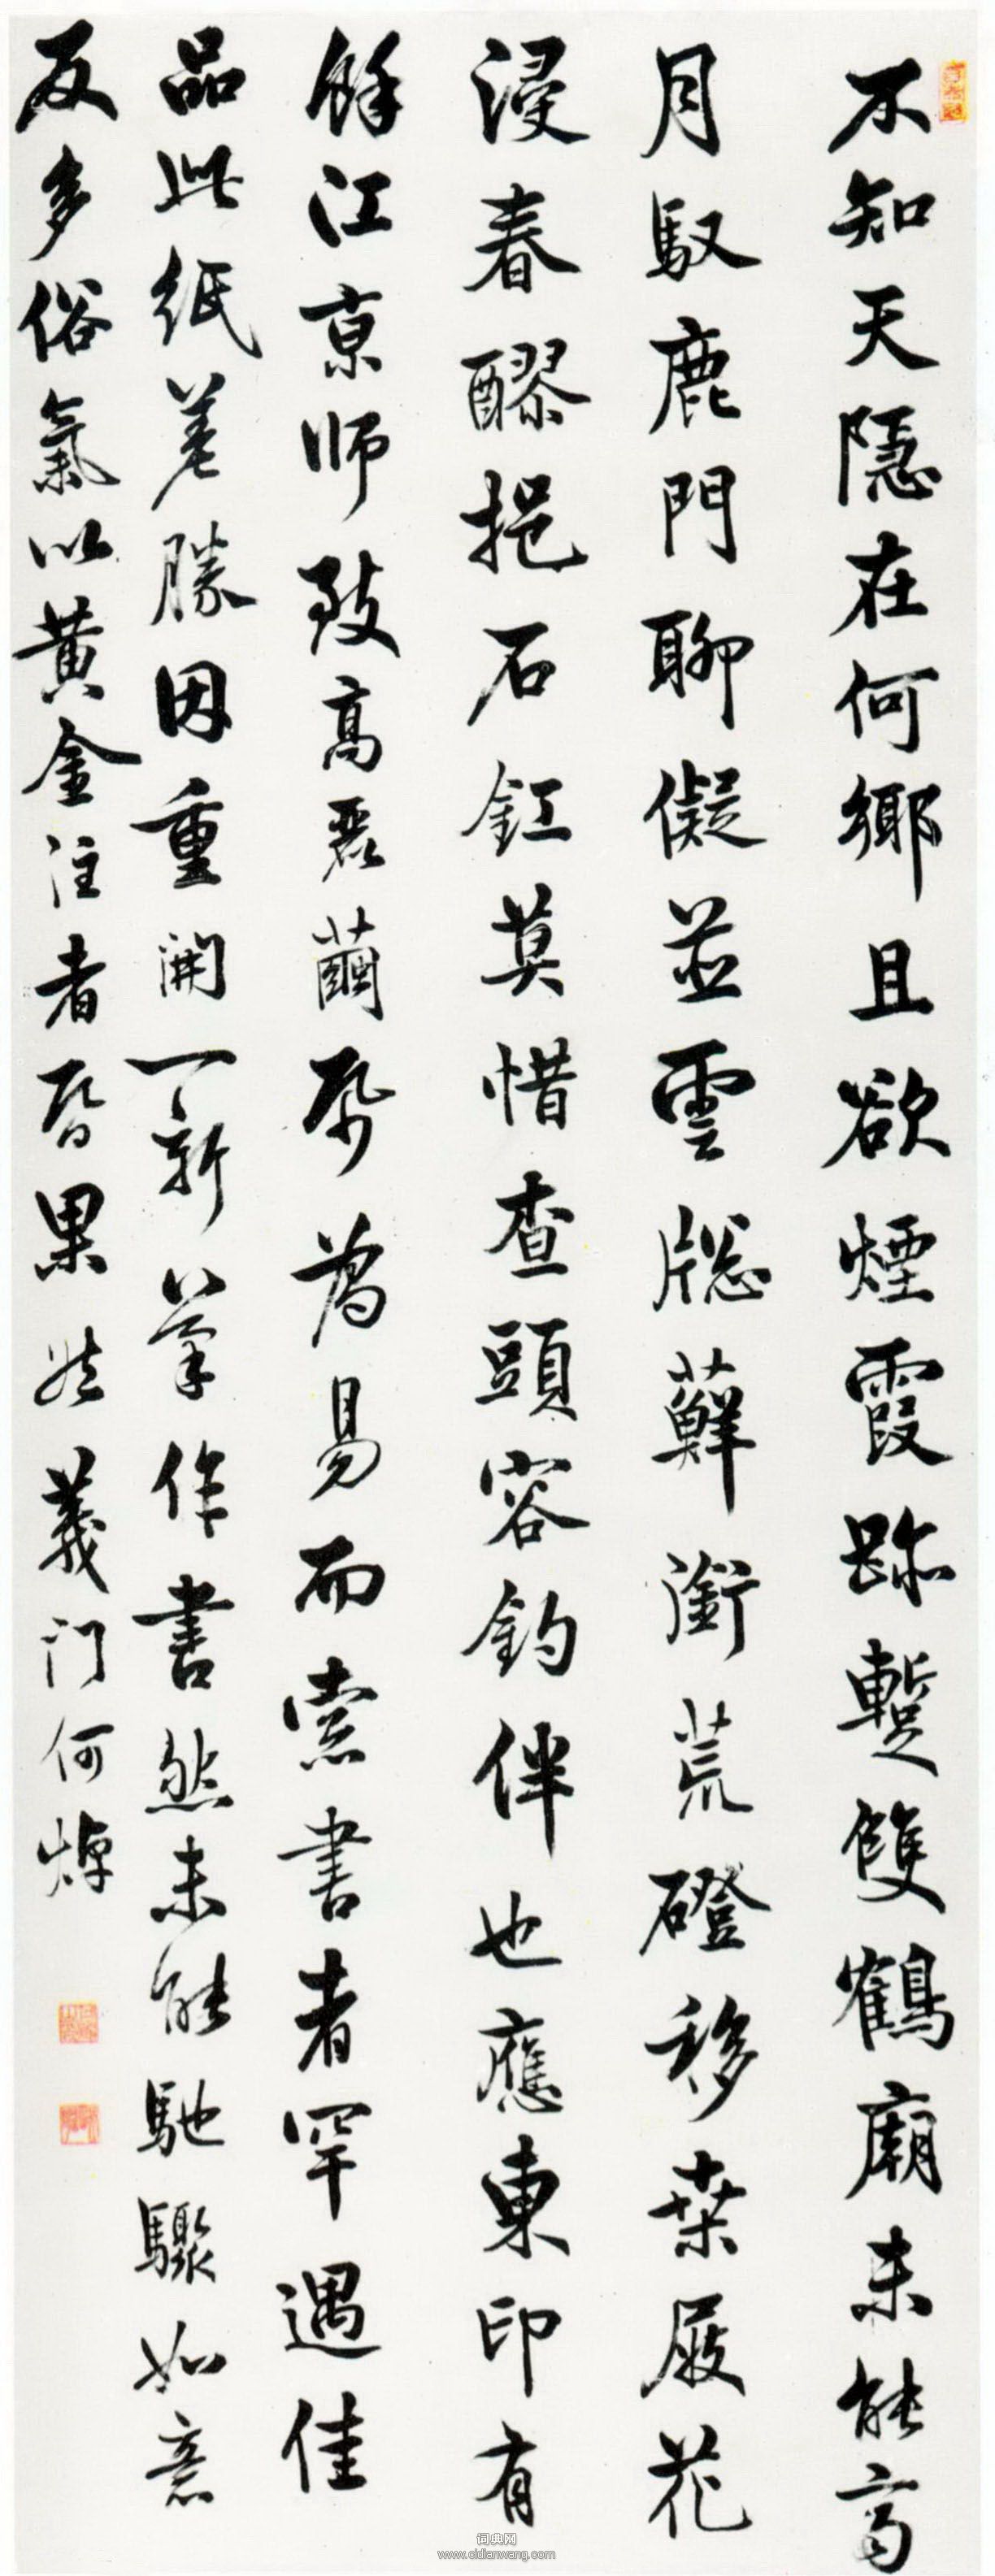 不知天隱在何鄉且欲煙霞跡蹔雙鶴廟未能齊
月馭鹿門聊儗並雲牎蘚銜荒磴移桒屐花
浸春醪挹石釭莫惜查頭容釣伴也應東印有
餘江京師致高麗繭帋為易而索書者罕遇佳
品此紙差勝因重開一新筆作書然未能馳驟如意
反多俗氣以黃金注者昏果然義门何焯
词典网
www.cidianwang.com